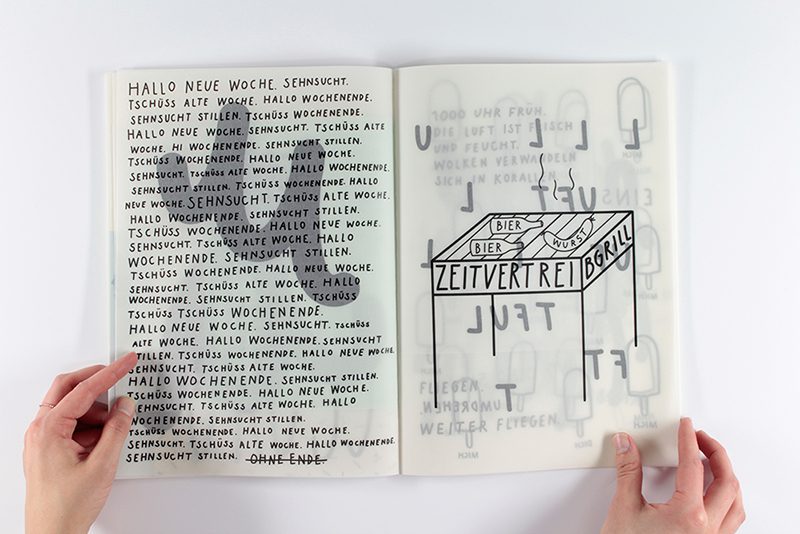 HALLO NEUE WOCHE. SEHNSUCHT.
TSCHÜSS ALTE WOCHE. HALLO WOCHENENDE.
SEHNSUCHT STILLEN. TSCHÜSS WOCHENENDE.
HALLO NEUE WOCHE. SEHNSUCHT. TSCHÜSS ALTE
WOCHE. HI WOCHENENDE. SEHNSUCHT STILLEN.
TSCHÜSS WOCHENENDE. HALLO NEUE WOCHE.
SEHNSUCHT. TSCHÜSS ALTE WOCHE. HALLO WOCHENENDE.
SEHNSUCHT STILLEN. TSCHÜSS WOCHENENDE. HALLO
NEUE WOCHE. SEHNSUCHT. TSCHÜSS ALTE WOCHE.
HALLO WOCHENENDE. SEHNSUCHT STILLEN.
TSCHÜSS WOCHENENDE. HALLO NEUE WOCHE.
SEHNSUCHT. TSCHÜSS ALTE WOCHE. HALLO
WOCHENENDE. SEHNSUCHT STILLEN.
TSCHÜSS WOCHENENDE. HALLO NEUE WOCHE.
SEHNSUCHT. TSCHÜSS ALTE WOCHE. HALLO
WOCHENENDE. SEHNSUCHT STILLEN. TSCHÜSS
TSCHÜSS TSCHÜSS WOCHENENDE.
HALLO NEUE WOCHE. SEHNSUCHT. TSCHÜSS
ALTE WOCHE. HALLO WOCHENENDE. SEHNSUCHT
STILLEN. TSCHÜSS WOCHENENDE. HALLO NEUE WOCHE.
SEHNSUCHT. TSCHÜSS ALTE WOCHE.
HALLO WOCHENENDE. SEHNSUCHT STILLEN.
TSCHÜSS WOCHENENDE. HALLO NEUE WOCHE.
SEHNSUCHT. TSCHÜSS ALTE WOCHE. HALLO
WOCHENENDE. SEHNSUCHT STILLEN.
TSCHÜSS WOCHENENDE. HALLO NEUE WOCHE.
SEHNSUCHT. TSCHÜSS ALTE WOCHE. HALLO WOCHENENDE.
SEHNSUCHT STILLEN. OHNE ENDE.
1000 UHR FRÜH.
DIE LUFT IST
UND FEUCHT.
WOLKEN VERWANDELN
SICH IN KORALLEN
BIER
BIER
WURST
ZEITVERTREIBGRILL
FLIEGEN.
UMDREHEN.
WEITER FLIEGEN.